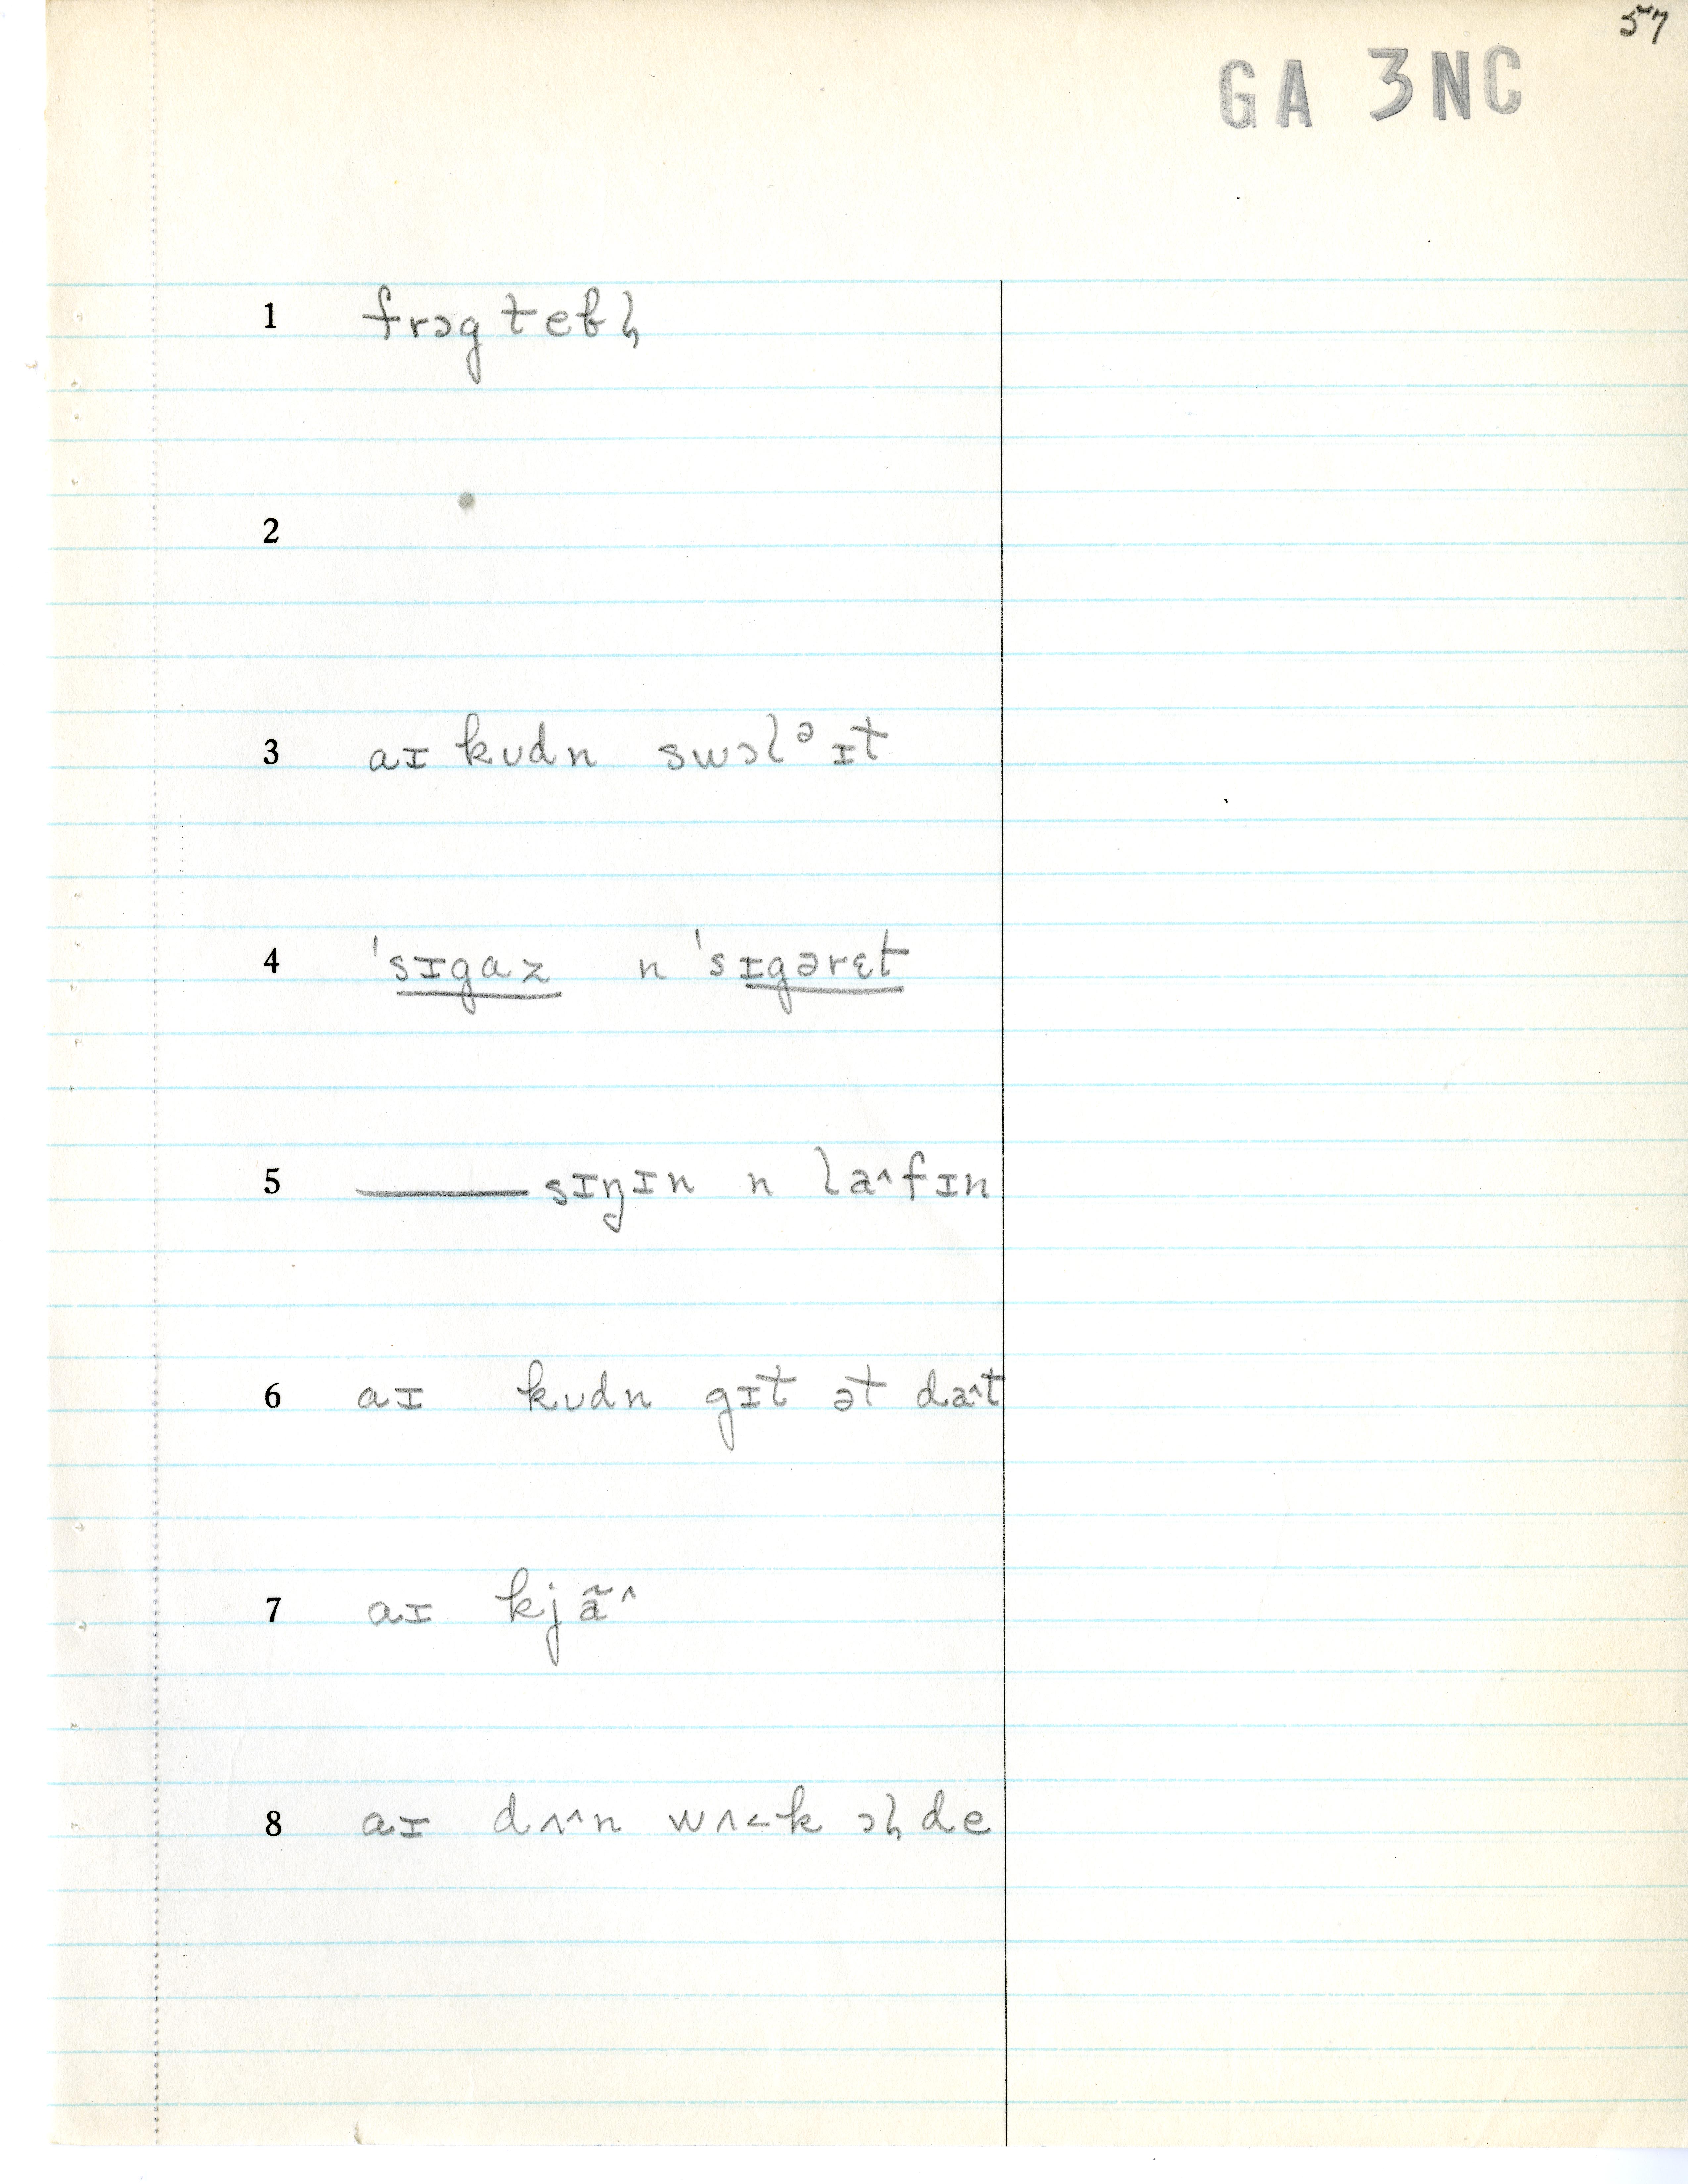 57
GA 3NC
1 frɔg teƀl̩
2
3 aɪ kʊdn swɔlᵊ ɪt
4 ˈsɪgaz n ˈsɪgəret
5 —— sɪŋɪn n la^fɪn
6 aɪ kʊdn gɪt ət da^t
7 aɪ kjã^
8 aɪ dʌ^n wʌ<k ɔl̩ de